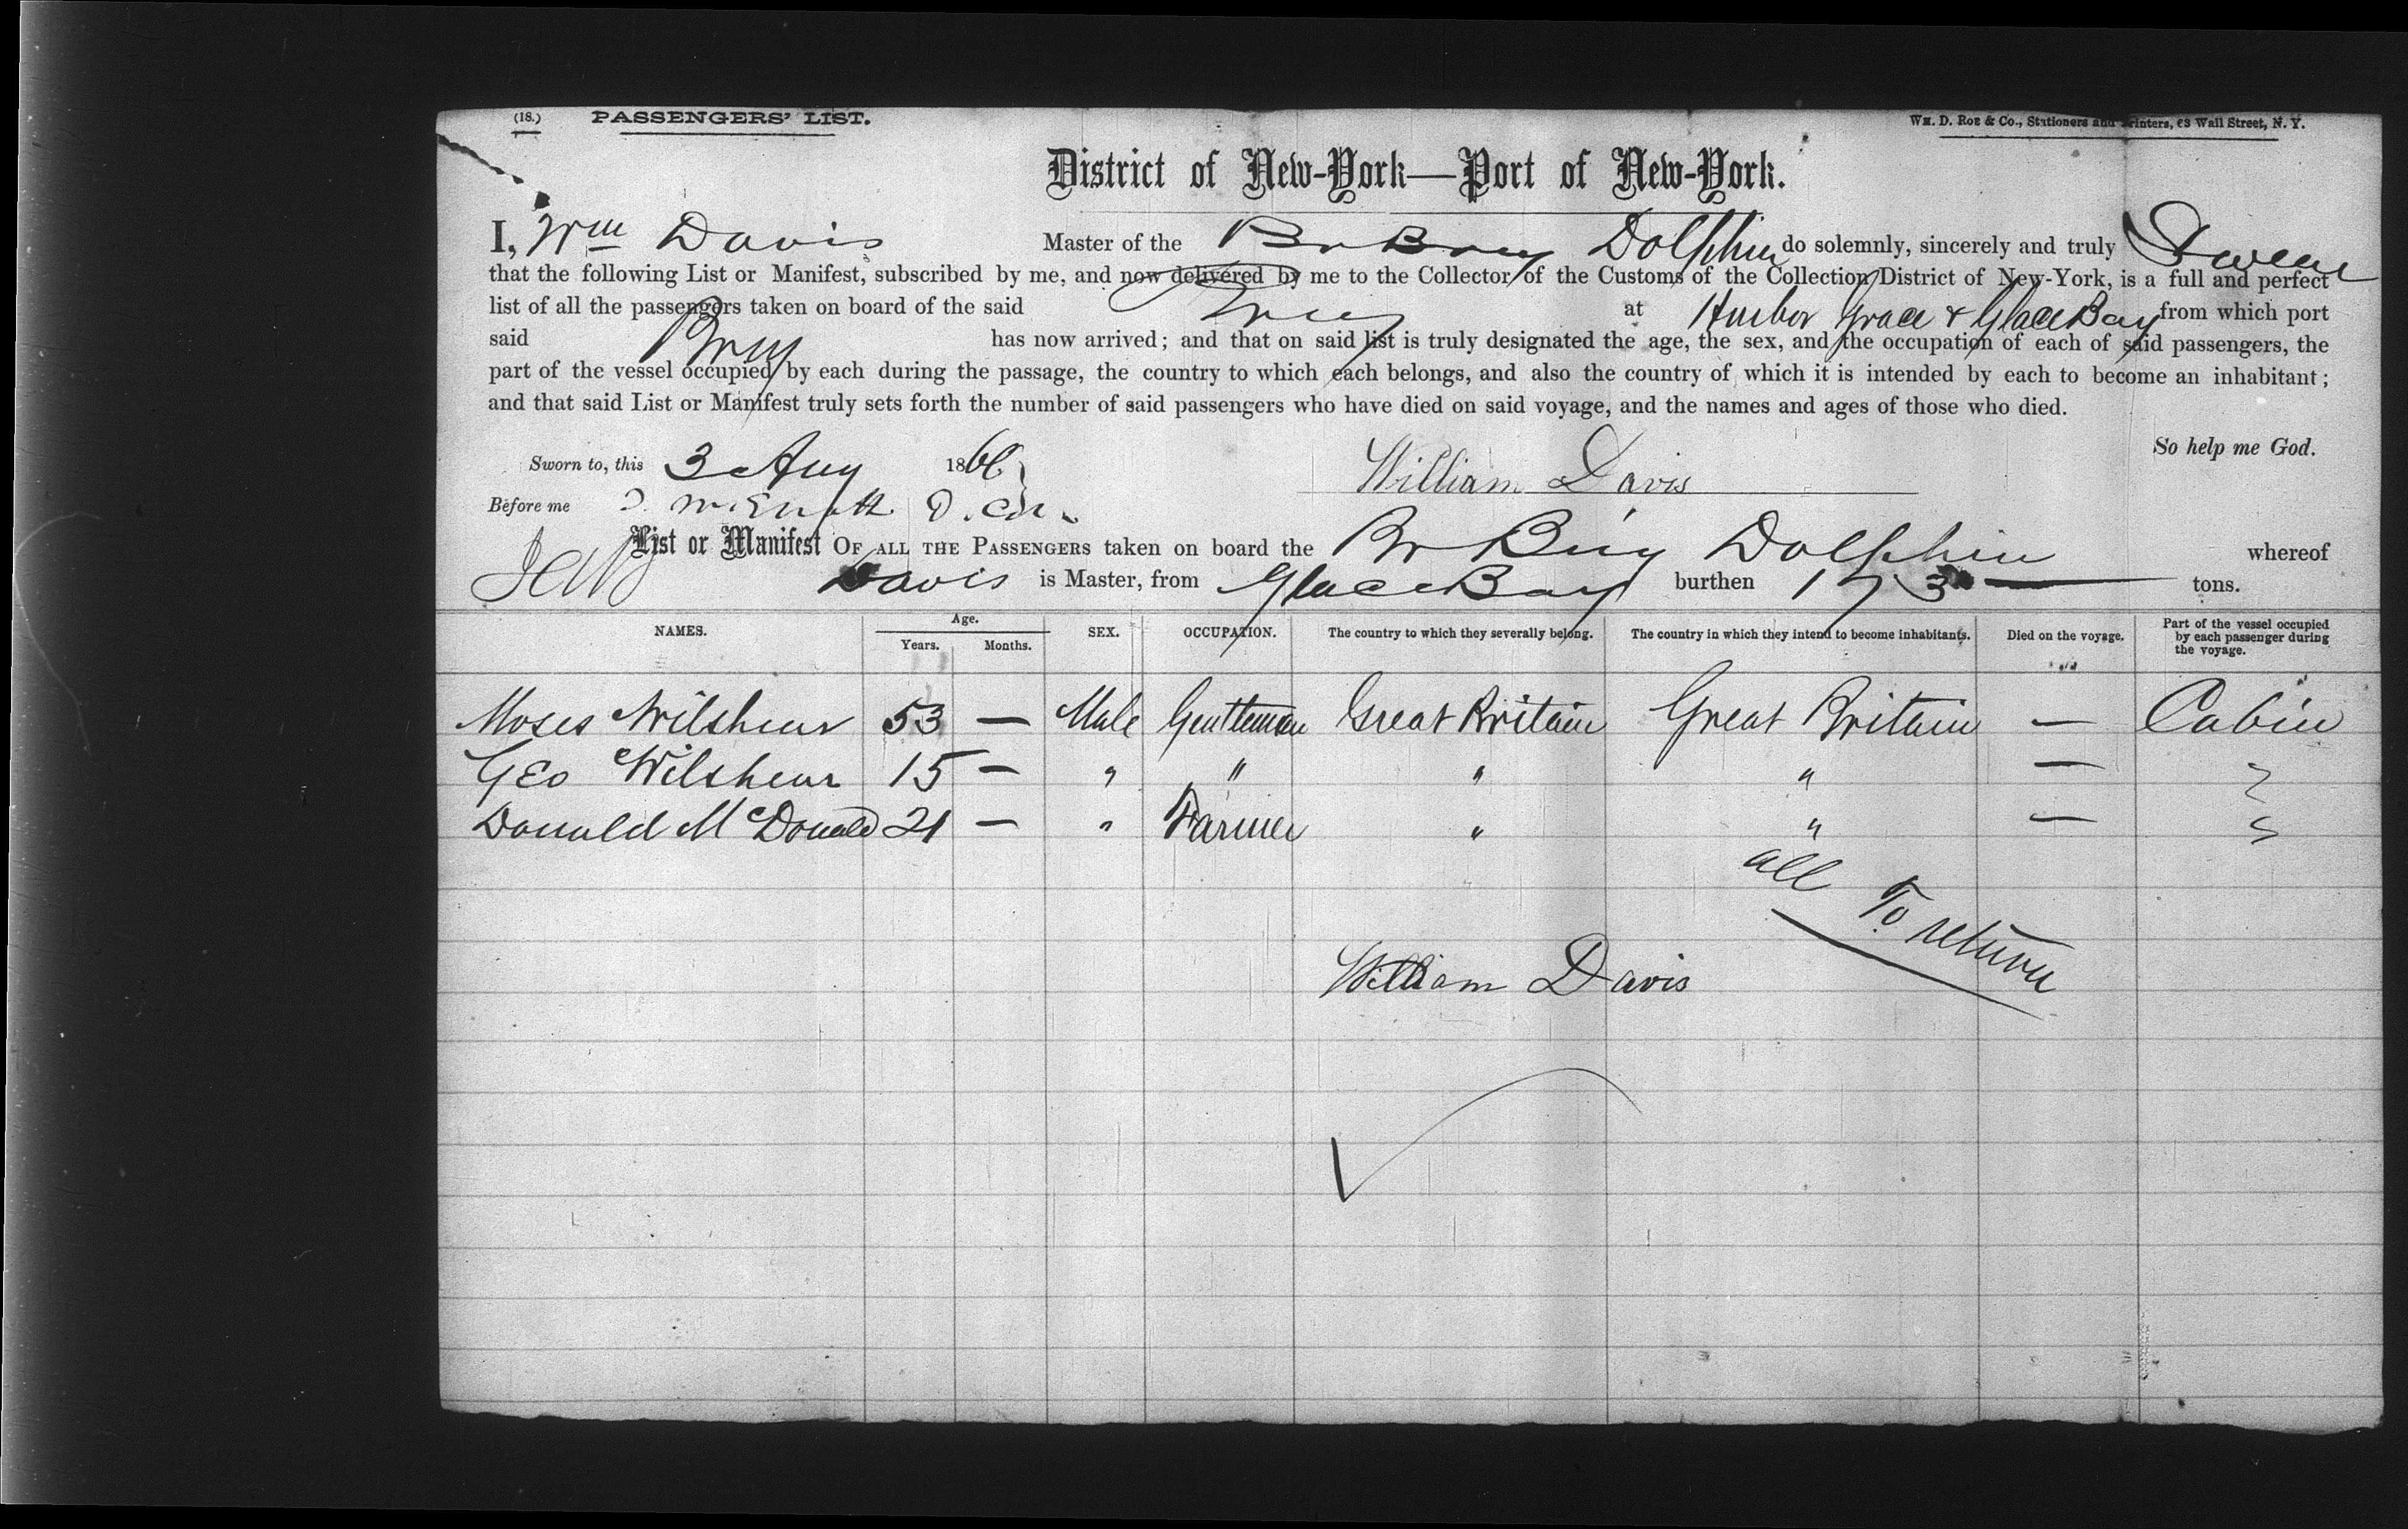 (18.) PASSENGERS' LIST. WM. D. ROE & Co., Stationers and Printers, 63 Wall Street, N. Y.
District of New-York—Port of New-York.
I, Wm Davis Master of the Br Brig Dolphin do solemnly, sincerely and truly Swear
that the following List or Manifest, subscribed by me, and now delivered by me to the Collector of the Customs of the Collection District of New-York, is a full and perfect
list of all the passengers taken on board of the said Brig at Harbor Grace & Glace Bay from which port
said Brig has now arrived; and that on said list is truly designated the age, the sex, and the occupation of each of said passengers, the
part of the vessel occupied by each during the passage, the country to which each belongs, and also the country of which it is intended by each to become an inhabitant;
and that said List or Manifest truly sets forth the number of said passengers who have died on said voyage, and the names and ages of those who died.
So help me God.
Sworn to, this 3 Aug 1866 William Davis
Before me
List or Manifest OF ALL THE PASSENGERS taken on board the Br Brig Dolphin whereof
Davis is Master, from Glace Bay burthen 173 tons.
NAMES. Age. Years. Months. SEX. OCCUPATION. The country to which they severally belong. The country in which they intend to become inhabitants. Died on the voyage. Part of the vessel occupied by each passenger during the voyage.
Moses Wilshear 53 — Male Gentleman Great Britain Great Britain — Cabin
Geo Wilshear 15 — " " " " — "
Donald McDonald 21 — " Farmer " " — "
all To return
William Davis